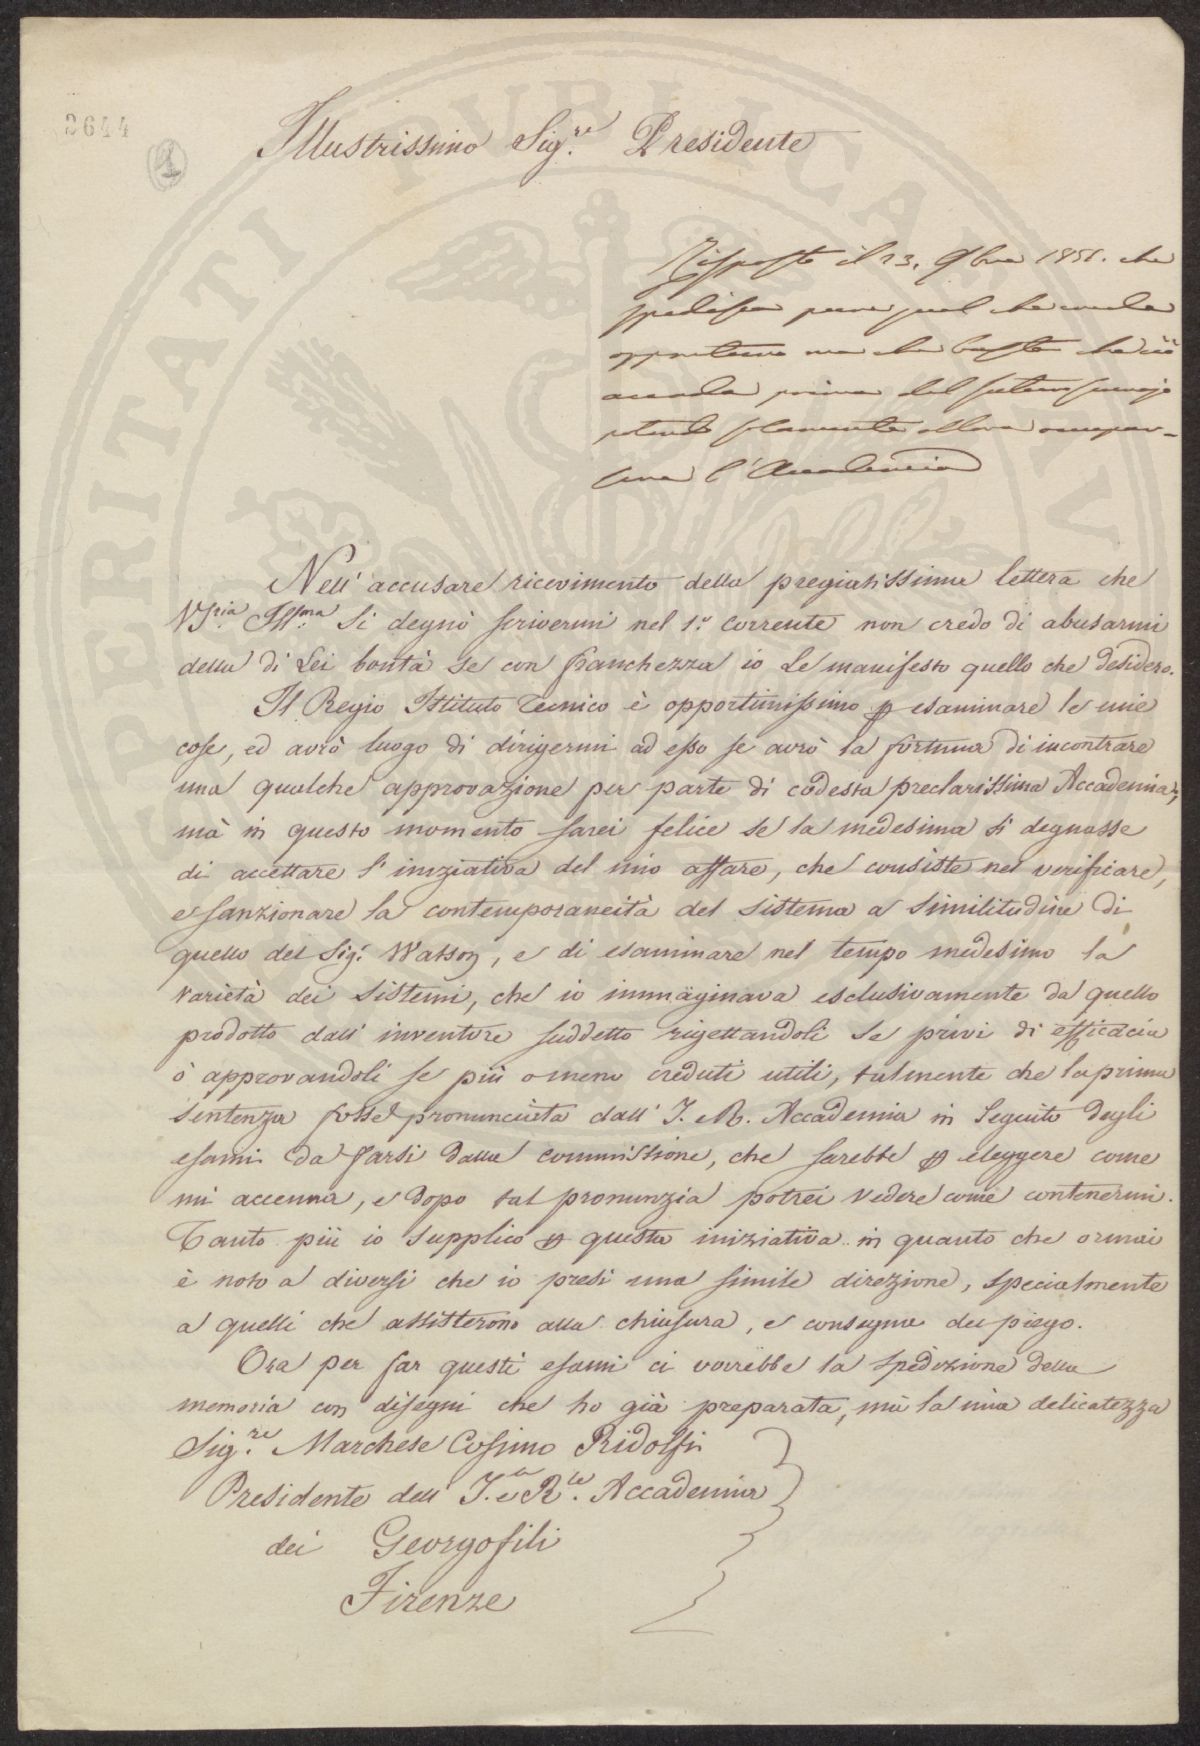 2644
1
Illustrissimo Sig.re Presidente
Risposto il 23. 9bre 1851. che
spedisca pure quel che creda
opportuno ma che basta che ciò
accada prima del
potendo solamente allora occupar-
sene l'Accademia
Nell' accusare ricevimento della pregiatissima lettera che
VSria Ill.ma si degnò scrivermi nel 1.º corrente non credo di abusarmi
della di Lei bontà se con franchezza io Le manifesto quello che desidero.
Il Regio Istituto Tecnico è opportunissimo p esaminare le mie
cose, ed avrò luogo di dirigermi ad esso se avrò la fortuna di incontrare
una qualche approvazione per parte di codesta preclarissima Accademia;
mà in questo momento sarei felice se la medesima si degnasse
di accettare l' iniziativa del mio affare, che consiste nel verificare,
e sanzionare la contemporaneità del sistema a similitudine di
quello del Sig.r Watson, e di esaminare nel tempo medesimo la
varietà dei sistemi, che io immaginava esclusivamente da quello
prodotto dall' inventore suddetto rigettandoli se privi di efficacia
ò approvandoli se più o meno creduti utili, talmente che la prima
sentenza fosse pronunciata dall' I. e R. Accademia in seguito degli
esami da farsi dalla commissione, che sarebbe p eleggere come
mi accenna, e dopo tal pronunzia potrei vedere come contenermi.
Tanto più io supplico p questa iniziativa in quanto che ormai
è noto a diversi che io presi una simile direzione, specialmente
a quelli che assisterono alla chiusura, e consegna del piego.
Ora per far questi esami ci vorrebbe la spedizione della
memoria con disegni che ho già preparata, mà la mia delicatezza
Sig.re Marchese Cosimo Ridolfi
Presidente dell' I. e R.le Accademia
dei Georgofili
Firenze
SPERITATI PUBLICAE